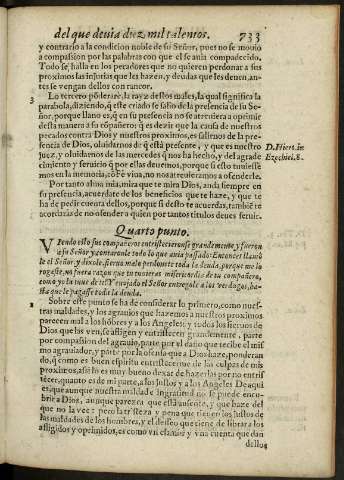 del que deuia diez mil talentos. 733
y contrario a la condicion noble de su Señor, pues no se mouio
a compasion por las palabras con que el se auia compadecido.
Todo se halla en los pecadores que no quieren perdonar a sus
proximos las injurias que les hazen, y deudas que les deuen, an-
tes se vengan dellos con rancor.
3 Lo tercero põderarè la rayz destos males, la qual significa la
parabola, diziendo, q̃ este criado se salio de la presencia de su Se-
ñor, porque llano es, q̃ en su presencia no se atreuiera a oprimir
desta manera a su cõpañero: q̃ es dezir que la causa de nuestros
pecados contra Dios y nuestros proximos, es salirnos de la pre-
sencia de Dios, oluidarnos de q̃ està presente, y que es nuestro
D. Hiero. in
Iuez, y oluidarnos de las mercedes q̃ nos ha hecho, y del agrade
Ezechiel. 8.
cimiento y seruicio q̃ por ellas deuemos, porque si esto tuuiesse
mos en la memoria, cõ Fè viua, no nos atreueriamos a ofenderle.
Por tanto alma mia, mira que te mira Dios, anda siempre en
su presencia, acuerdate de los beneficios que te haze, y que te
ha de pedir cuenta dellos, porque si desto te acuerdas, tambiẽ te
acordaràs de no ofender a quien por tantos titulos deues seruir.
Quarto punto.
VIendo esto sus compañeros entristecieronse grandemente, y fueron
a su Señor y contaronle todo lo que auia passado: Entonces llamò
le el Señor, y dixole, sieruo malo perdonete toda la deuda, porque me lo
rogaste, no fuera razon que tu tuuieras misericordia de tu compañero,
como yo la tuue de ti? Y enojado el Señor entregole a los verdugos, ha-
sta que le pagasse toda la deuda.
1 Sobre este punto se ha de considerar lo primero, como nues-
tras maldades, y los agrauios que hazemos a nuestros proximos
parecen mal a los hõbres y a los Angeles: y todos los sieruos de
Dios que las ven, se afligen y entristecen grandemente, parte
por compasion del agrauio, parte por el daño que recibe el mis
mo agrauiador, y parte por la ofensa que a Dios haze, ponderan
do, q̃ como es buen espiritu entristecerme de las culpas de mis
proximos, assi lo es muy bueno dexar de hazerlas por no entris
tecer, quanto es de mi parte, a los justos y a los Angeles. De aqui
es, que aunque nuestra maldad e ingratitud no se puede encu-
brir a Dios, aunque parezca que està ausente, y que haze del
que no la vee: pero la tristeza y pena que tienen los justos de
las maldades de los hombres, y el desseo que tiene de librar a los
afligidos y oprimidos, es como vn clamor y vna cuenta que dan
dellos